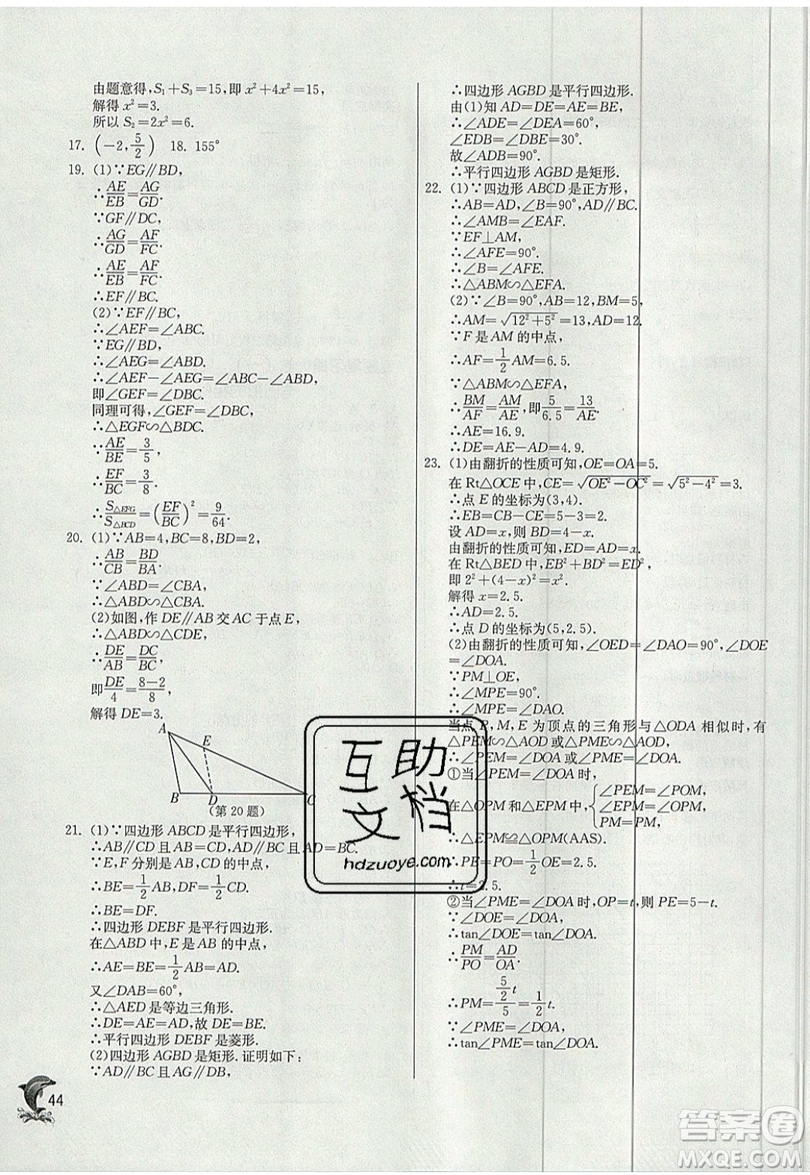 由题意得,S₁+S₃=15,即 x²+4x²=15,
解得 x²=3.
所以 S₂=2x²=6.
17. (-2, 5/2) 18. 155°
19. (1)∵EG∥BD,
∴AE/EB=AG/GD.
∵GF∥DC,
∴AG/GD=AF/FC.
∴AE/EB=AF/FC.
∴EF∥BC.
(2)∵EF∥BC,
∴∠AEF=∠ABC.
∵EG∥BD,
∴∠AEG=∠ABD.
∴∠AEF-∠AEG=∠ABC-∠ABD,
即∠GEF=∠DBC.
同理可得,∠GEF=∠DBC,
∴△EGF∽△BDC.
∵AE/EB=3/5,
∴EF/BC=3/8.
∴S△EFG/S△BCD=(EF/BC)²=9/64.
20. (1)∵AB=4,BC=8,BD=2,
∴AB/CB=BD/BA.
∵∠ABD=∠CBA,
∴△ABD∽△CBA.
(2)如图,作 DE∥AB 交 AC 于点 E,
∴△ABD∽△CDE,
∴DE/AB=DC/BC.
即DE/4=(8-2)/8.
解得 DE=3.
A
E
B D C
(第 20 题)
21. (1)∵四边形 ABCD 是平行四边形,
∴AB∥CD 且 AB=CD,AD∥BC 且 AD=BC.
∵E,F 分别是 AB,CD 的中点,
∴BE=1/2AB,DF=1/2CD.
∴BE=DF.
∴四边形 DEBF 是平行四边形.
在△ABD 中,E 是 AB 的中点,
∴AE=BE=1/2AB=AD.
又∠DAB=60°,
∴△AED 是等边三角形.
∴DE=AE=AD,故 DE=BE.
∴平行四边形 DEBF 是菱形.
(2)四边形 AGBD 是矩形. 证明如下:
∵AD∥BC 且 AG∥DB,
∴四边形 AGBD 是平行四边形.
由(1)知 AD=DE=AE=BE,
∴∠ADE=∠DEA=60°,
∠EDB=∠DBE=30°.
故∠ADB=90°.
∴平行四边形 AGBD 是矩形.
22. (1)∵四边形 ABCD 是正方形,
∴AB=AD,∠B=90°,AD∥BC.
∴∠AMB=∠EAF.
∵EF⊥AM,
∴∠AFE=90°.
∴∠B=∠AFE.
∴△ABM∽△EFA.
(2)∵∠B=90°,AB=12,BM=5,
∴AM=√(12²+5²)=13,AD=12.
∵F 是 AM 的中点,
∴AF=1/2AM=6.5.
∵△ABM∽△EFA,
∴BM/AF=AM/AE,即5/6.5=13/AE.
∴AE=16.9.
∴DE=AE-AD=4.9.
23. (1)由翻折的性质可知,OE=OA=5.
在 Rt△OCE 中,CE=√(OE²-OC²)=√(5²-4²)=3.
∴点 E 的坐标为(3,4).
∴EB=CB-CE=5-3=2.
设 AD=x,则 BD=4-x.
由翻折的性质可知,ED=AD=x.
在 Rt△BED 中,EB²+BD²=ED²,
即 2²+(4-x)²=x².
解得 x=2.5.
∴AD=2.5.
∴点 D 的坐标为(5,2.5).
(2)由翻折的性质可知,∠OED=∠DAO=90°,∠DOE
=∠DOA.
∵PM⊥OE,
∴∠MPE=90°.
∴∠MPE=∠DAO.
当点 P,M,E 为顶点的三角形与△ODA 相似时,有
△PEM∽△AOD 或△PME∽△AOD.
①当∠PEM=∠DOA 时,
在△OPM 和△EPM 中,{∠PEM=∠POM,
∠EPM=∠OPM,
PM=PM,
∴△EPM≌△OPM(AAS).
∴PE=PO=1/2OE=2.5.
∴t=2.5.
②当∠PME=∠DOA 时,OP=t,则 PE=5-t.
∵∠DOE=∠DOA,
∴tan∠DOE=tan∠DOA.
∴PM/PO=AD/OA.
∴PM=(5/2)/5 t=1/2t.
∵∠PME=∠DOA,
∴tan∠PME=tan∠DOA.
44
互助
文档
hdzuoye.com
答案圈
MXQE.COM